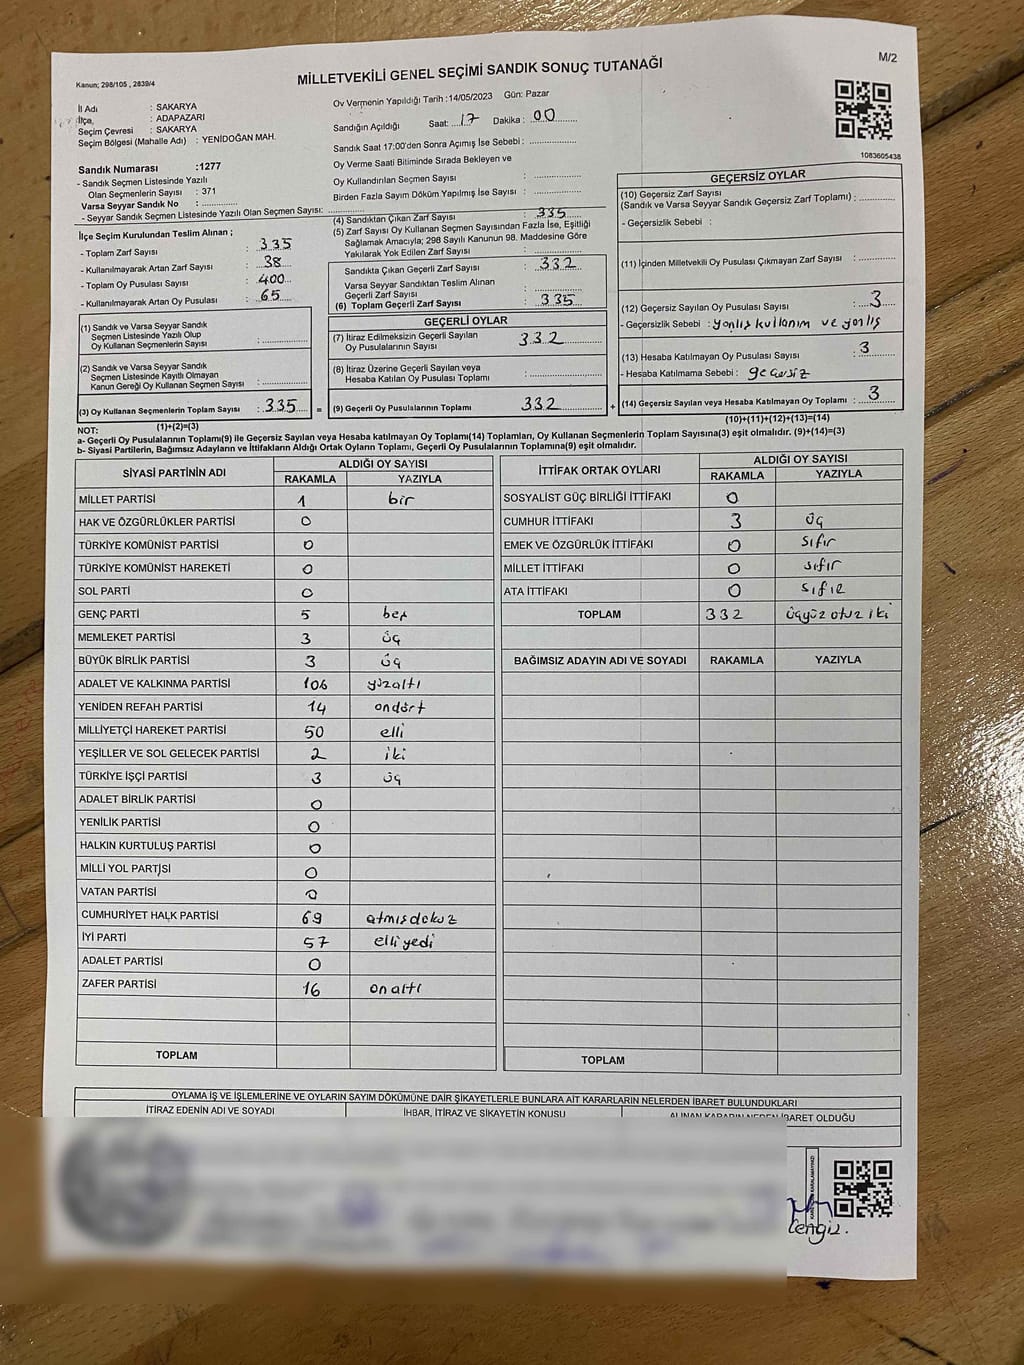 M/2
Kanun; 298/105 , 2839/4
MİLLETVEKİLİ GENEL SEÇİMİ SANDIK SONUÇ TUTANAĞI
İl Adı : SAKARYA
İlçe, : ADAPAZARI
Seçim Çevresi : SAKARYA
Seçim Bölgesi (Mahalle Adı) : YENİDOĞAN MAH.
Sandık Numarası :1277
- Sandık Seçmen Listesinde Yazılı
Olan Seçmenlerin Sayısı : 371
Varsa Seyyar Sandık No :
- Seyyar Sandık Seçmen Listesinde Yazılı Olan Seçmen Sayısı:
Oy Vermenin Yapıldığı Tarih :14/05/2023 Gün: Pazar
Sandığın Açıldığı Saat: 17 Dakika : 00
Sandık Saat 17:00'den Sonra Açımış İse Sebebi :
Oy Verme Saati Bitiminde Sırada Bekleyen ve
Oy Kullandırılan Seçmen Sayısı :
Birden Fazla Sayım Döküm Yapılmış İse Sayısı :
1083605438
İlçe Seçim Kurulundan Teslim Alınan ;
- Toplam Zarf Sayısı : 335
- Kullanılmayarak Artan Zarf Sayısı : 38
- Toplam Oy Pusulası Sayısı : 400
- Kullanılmayarak Artan Oy Pusulası : 65
(1) Sandık ve Varsa Seyyar Sandık
Seçmen Listesinde Yazılı Olup
Oy Kullanan Seçmenlerin Sayısı :
(2) Sandık ve Varsa Seyyar Sandık
Seçmen Listesinde Kayıtlı Olmayan
Kanun Gereği Oy Kullanan Seçmen Sayısı :
(3) Oy Kullanan Seçmenlerin Toplam Sayısı : 335 =
(1)+(2)=(3)
(4) Sandıktan Çıkan Zarf Sayısı : 335
(5) Zarf Sayısı Oy Kullanan Seçmen Sayısından Fazla İse, Eşitliği
Sağlamak Amacıyla; 298 Sayılı Kanunun 98. Maddesine Göre
Yakılarak Yok Edilen Zarf Sayısı :
Sandıkta Çıkan Geçerli Zarf Sayısı : 332
Varsa Seyyar Sandıktan Teslim Alınan
Geçerli Zarf Sayısı :
(6) Toplam Geçerli Zarf Sayısı : 335
GEÇERLİ OYLAR
(7) İtiraz Edilmeksizin Geçerli Sayılan
Oy Pusulalarının Sayısı : 332
(8) İtiraz Üzerine Geçerli Sayılan veya
Hesaba Katılan Oy Pusulası Toplamı :
(9) Geçerli Oy Pusulalarının Toplamı 332 +
GEÇERSİZ OYLAR
(10) Geçersiz Zarf Sayısı
(Sandık ve Varsa Seyyar Sandık Geçersiz Zarf Toplamı) :
- Geçersizlik Sebebi :
(11) İçinden Milletvekili Oy Pusulası Çıkmayan Zarf Sayısı :
(12) Geçersiz Sayılan Oy Pusulası Sayısı : 3
- Geçersizlik Sebebi : yanlış kullanım ve yanlış
(13) Hesaba Katılmayan Oy Pusulası Sayısı : 3
- Hesaba Katılmama Sebebi : geçersiz
(14) Geçersiz Sayılan veya Hesaba Katılmayan Oy Toplamı : 3
(10)+(11)+(12)+(13)=(14)
NOT:
a- Geçerli Oy Pusulalarının Toplamı(9) ile Geçersiz Sayılan veya Hesaba katılmayan Oy Toplamı(14) Toplamları, Oy Kullanan Seçmenlerin Toplam Sayısına(3) eşit olmalıdır. (9)+(14)=(3)
b- Siyasi Partilerin, Bağımsız Adayların ve İttifakların Aldığı Ortak Oyların Toplamı, Geçerli Oy Pusulalarının Toplamına(9) eşit olmalıdır.
SİYASİ PARTİNİN ADI ALDIĞI OY SAYISI
RAKAMLA YAZIYLA
MİLLET PARTİSİ 1 bir
HAK VE ÖZGÜRLÜKLER PARTİSİ 0
TÜRKİYE KOMÜNİST PARTİSİ 0
TÜRKİYE KOMÜNİST HAREKETİ 0
SOL PARTİ 0
GENÇ PARTİ 5 beş
MEMLEKET PARTİSİ 3 üç
BÜYÜK BİRLİK PARTİSİ 3 üç
ADALET VE KALKINMA PARTİSİ 106 yüzaltı
YENİDEN REFAH PARTİSİ 14 ondört
MİLLİYETÇİ HAREKET PARTİSİ 50 elli
YEŞİLLER VE SOL GELECEK PARTİSİ 2 iki
TÜRKİYE İŞÇİ PARTİSİ 3 üç
ADALET BİRLİK PARTİSİ 0
YENİLİK PARTİSİ 0
HALKIN KURTULUŞ PARTİSİ 0
MİLLİ YOL PARTİSİ 0
VATAN PARTİSİ 0
CUMHURİYET HALK PARTİSİ 69 atmışdokuz
İYİ PARTİ 57 elliyedi
ADALET PARTİSİ 0
ZAFER PARTİSİ 16 onaltı
TOPLAM
İTTİFAK ORTAK OYLARI ALDIĞI OY SAYISI
RAKAMLA YAZIYLA
SOSYALİST GÜÇ BİRLİĞİ İTTİFAKI 0
CUMHUR İTTİFAKI 3 üç
EMEK VE ÖZGÜRLÜK İTTİFAKI 0 sıfır
MİLLET İTTİFAKI 0 sıfır
ATA İTTİFAKI 0 sıfır
TOPLAM 332 üçyüz otuz iki
BAĞIMSIZ ADAYIN ADI VE SOYADI RAKAMLA YAZIYLA
TOPLAM
OYLAMA İŞ VE İŞLEMLERİNE VE OYLARIN SAYIM DÖKÜMÜNE DAİR ŞİKAYETLERLE BUNLARA AİT KARARLARIN NELERDEN İBARET BULUNDUKLARI
İTİRAZ EDENİN ADI VE SOYADI İHBAR, İTİRAZ VE ŞİKAYETİN KONUSU ALINAN KARARIN NEDEN İBARET OLDUĞU
Cengiz.